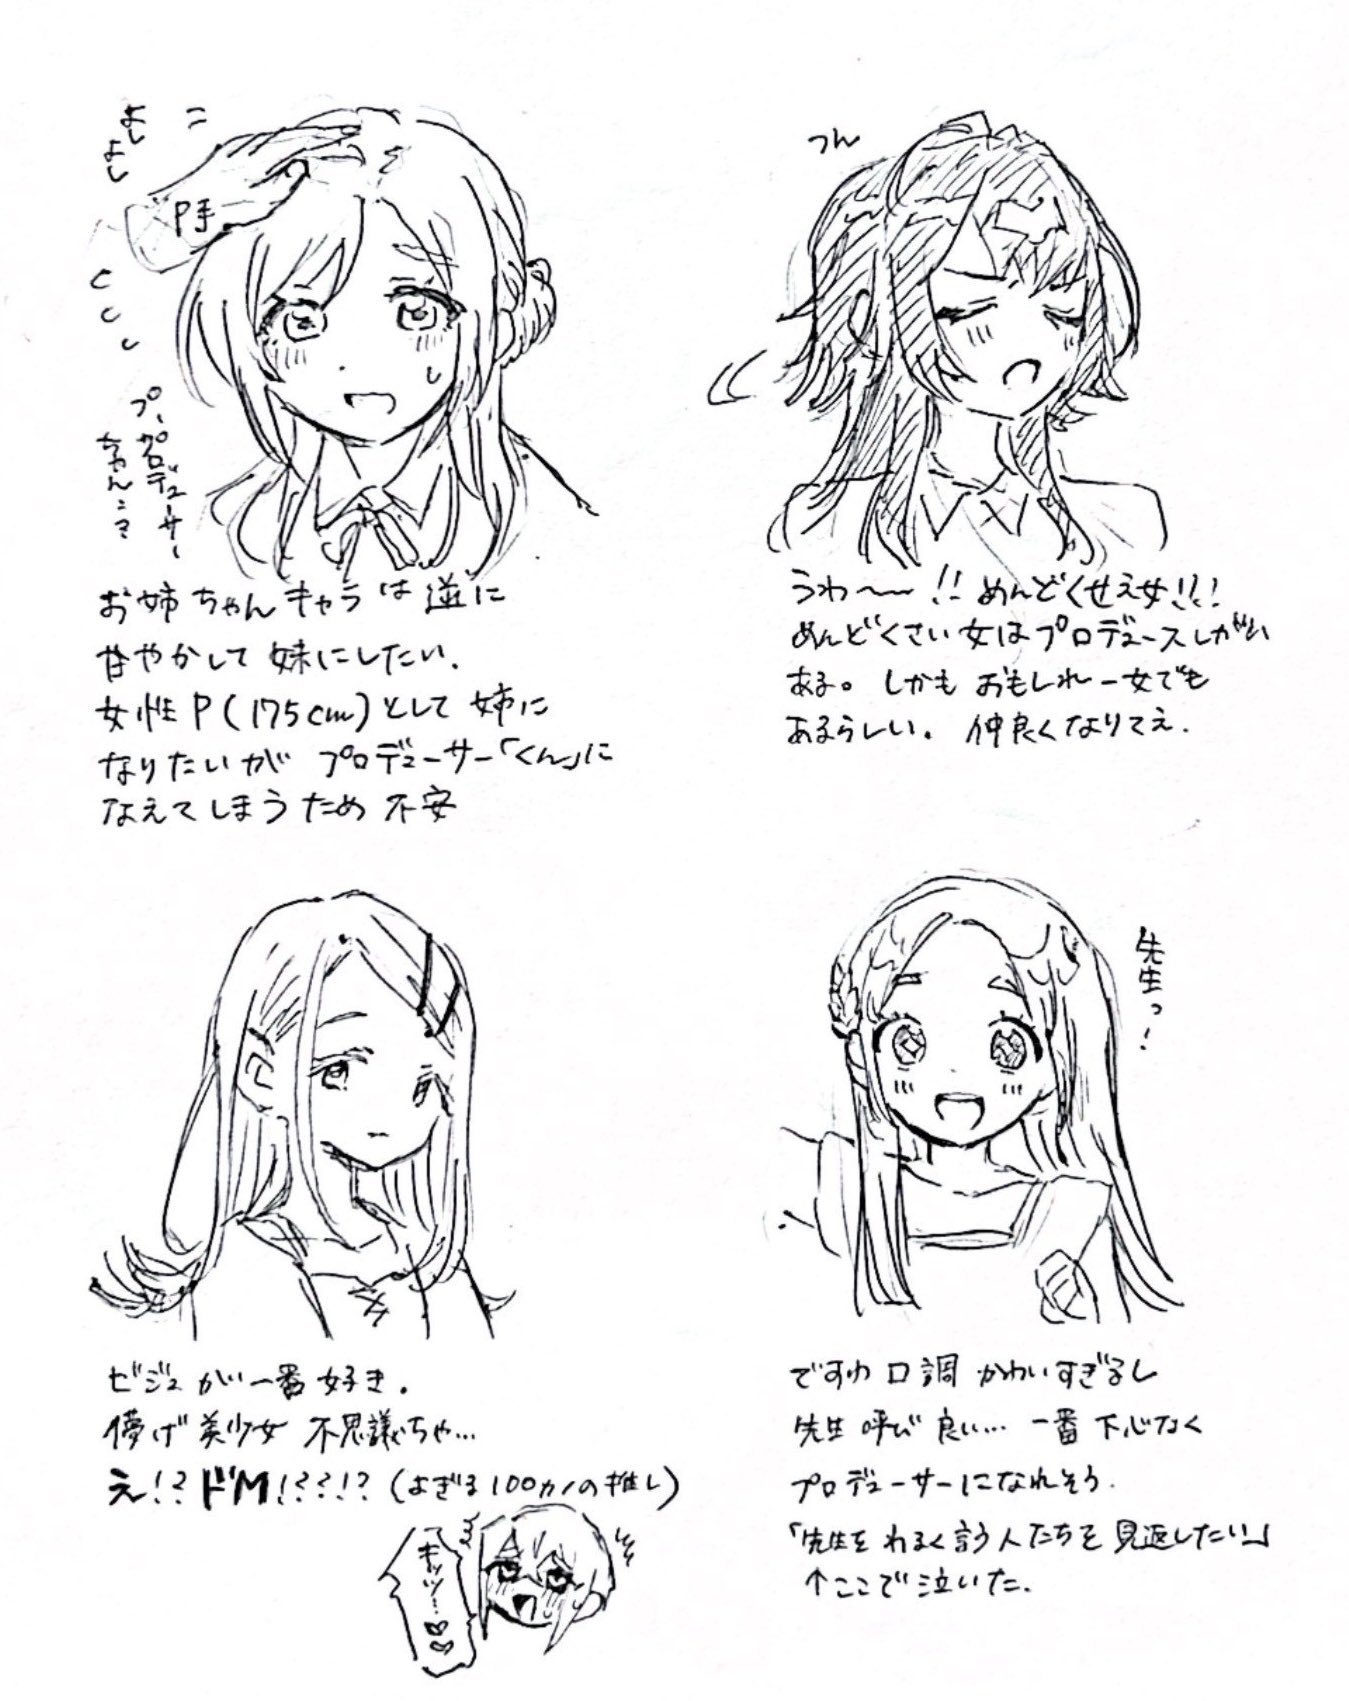 よし
よし
P手
プ、プロデューサー
ちゃん…?
お姉ちゃんキャラは逆に
甘やかして妹にしたい.
女性P(175cm)として姉に
なりたいが プロデューサー「くん」に
なえてしまうため不安
つん
うわ~~!! めんどくせえ女!!!
めんどくさい女はプロデュースしがい
ある。しかもおもしれー女でも
あるらしい。仲良くなりてえ.
ビジュが一番好き.
儚げ美少女 不思議ちゃ…
え!?ドM!??!?(よぎる100カノの推し)
キッツ…♡♡
先生っ!
ですわ口調かわいすぎるし
先生呼び良い… 一番下心なく
プロデューサーになれそう.
「先生をわるく言う人たちを見返したい」
↑ここで泣いた.